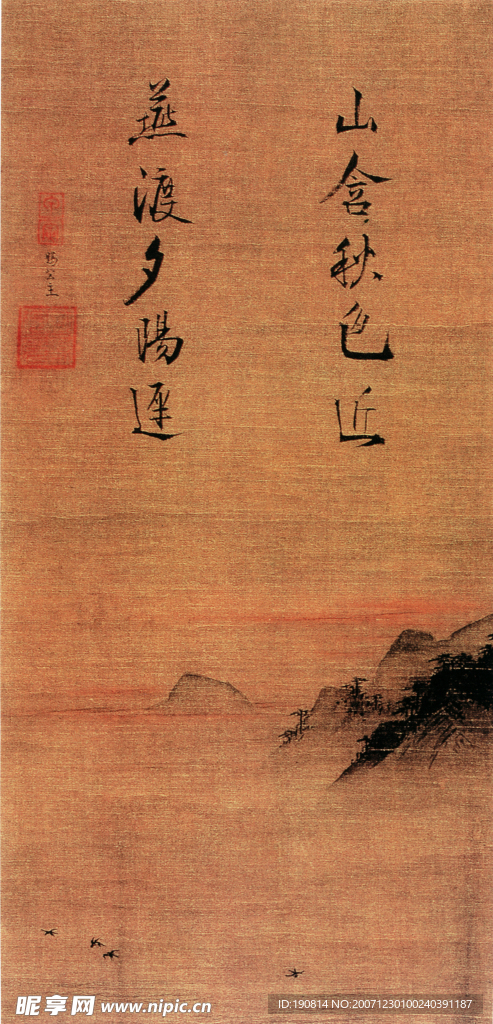 山含秋色近
燕渡夕陽遲
賜公主
昵享网 www.nipic.cn
ID:190814 NO:20071230100240391187